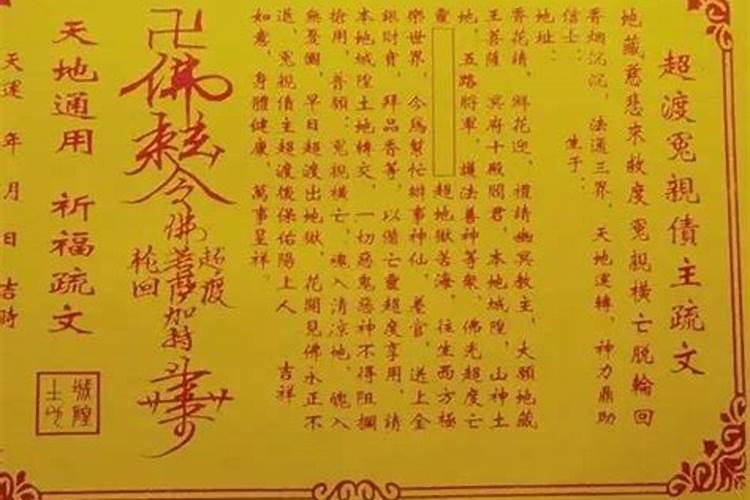 超渡冤親債主疏文
地藏慈悲來救度 冤親橫亡脫輪回
香烟沉沉，法通三界，天地運轉，神力鼎助
信士： 生于：
地址：
香花請，鮮花迎，禮請幽冥教主，大願地藏
王菩薩 冥府十殿閻君，本地城隍，山神土
地，五路將軍，護法善神等衆，佛光超度亡
靈 超地獄苦海，往生西方極
樂世界，今爲幫忙辦事神仙，差官，送上金
銀財寶，拜品香等，以備亡靈超度享用，請
本地城隍土地轉交，一切惡鬼惡神不得阻攔
搶用，普願：冤親橫亡，魂入清凉地，魄入
無憂國，早日超渡出地獄，花開見佛永正不
退，冤親債主超渡後保佑陽上人 吉祥
如意，身體健康，萬事呈祥。
卍
佛
令
佛菩薩加持
超渡
輪回
天地通用 祈福疏文
城隍
土地
天運 年 月 日 吉時